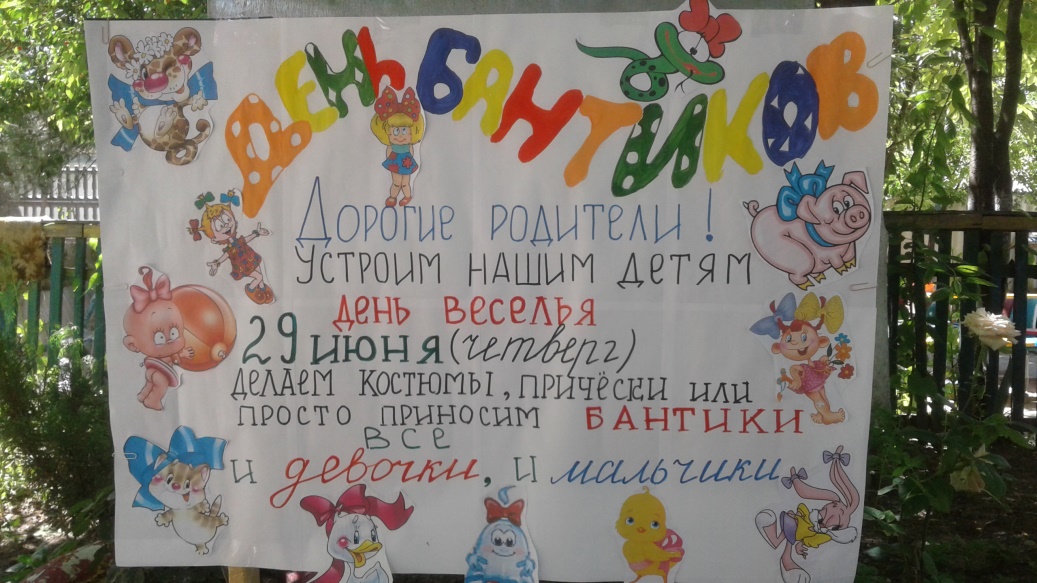 ДЕНЬ БАНТИКОВ
ДОРОГИЕ РОДИТЕЛИ!
УСТРОИМ НАШИМ ДЕТЯМ
ДЕНЬ ВЕСЕЛЬЯ
29 ИЮНЯ (четверг)
ДЕЛАЕМ КОСТЮМЫ, ПРИЧЁСКИ ИЛИ
ПРОСТО ПРИНОСИМ БАНТИКИ
ВСЕ
И девочки, И мальчики